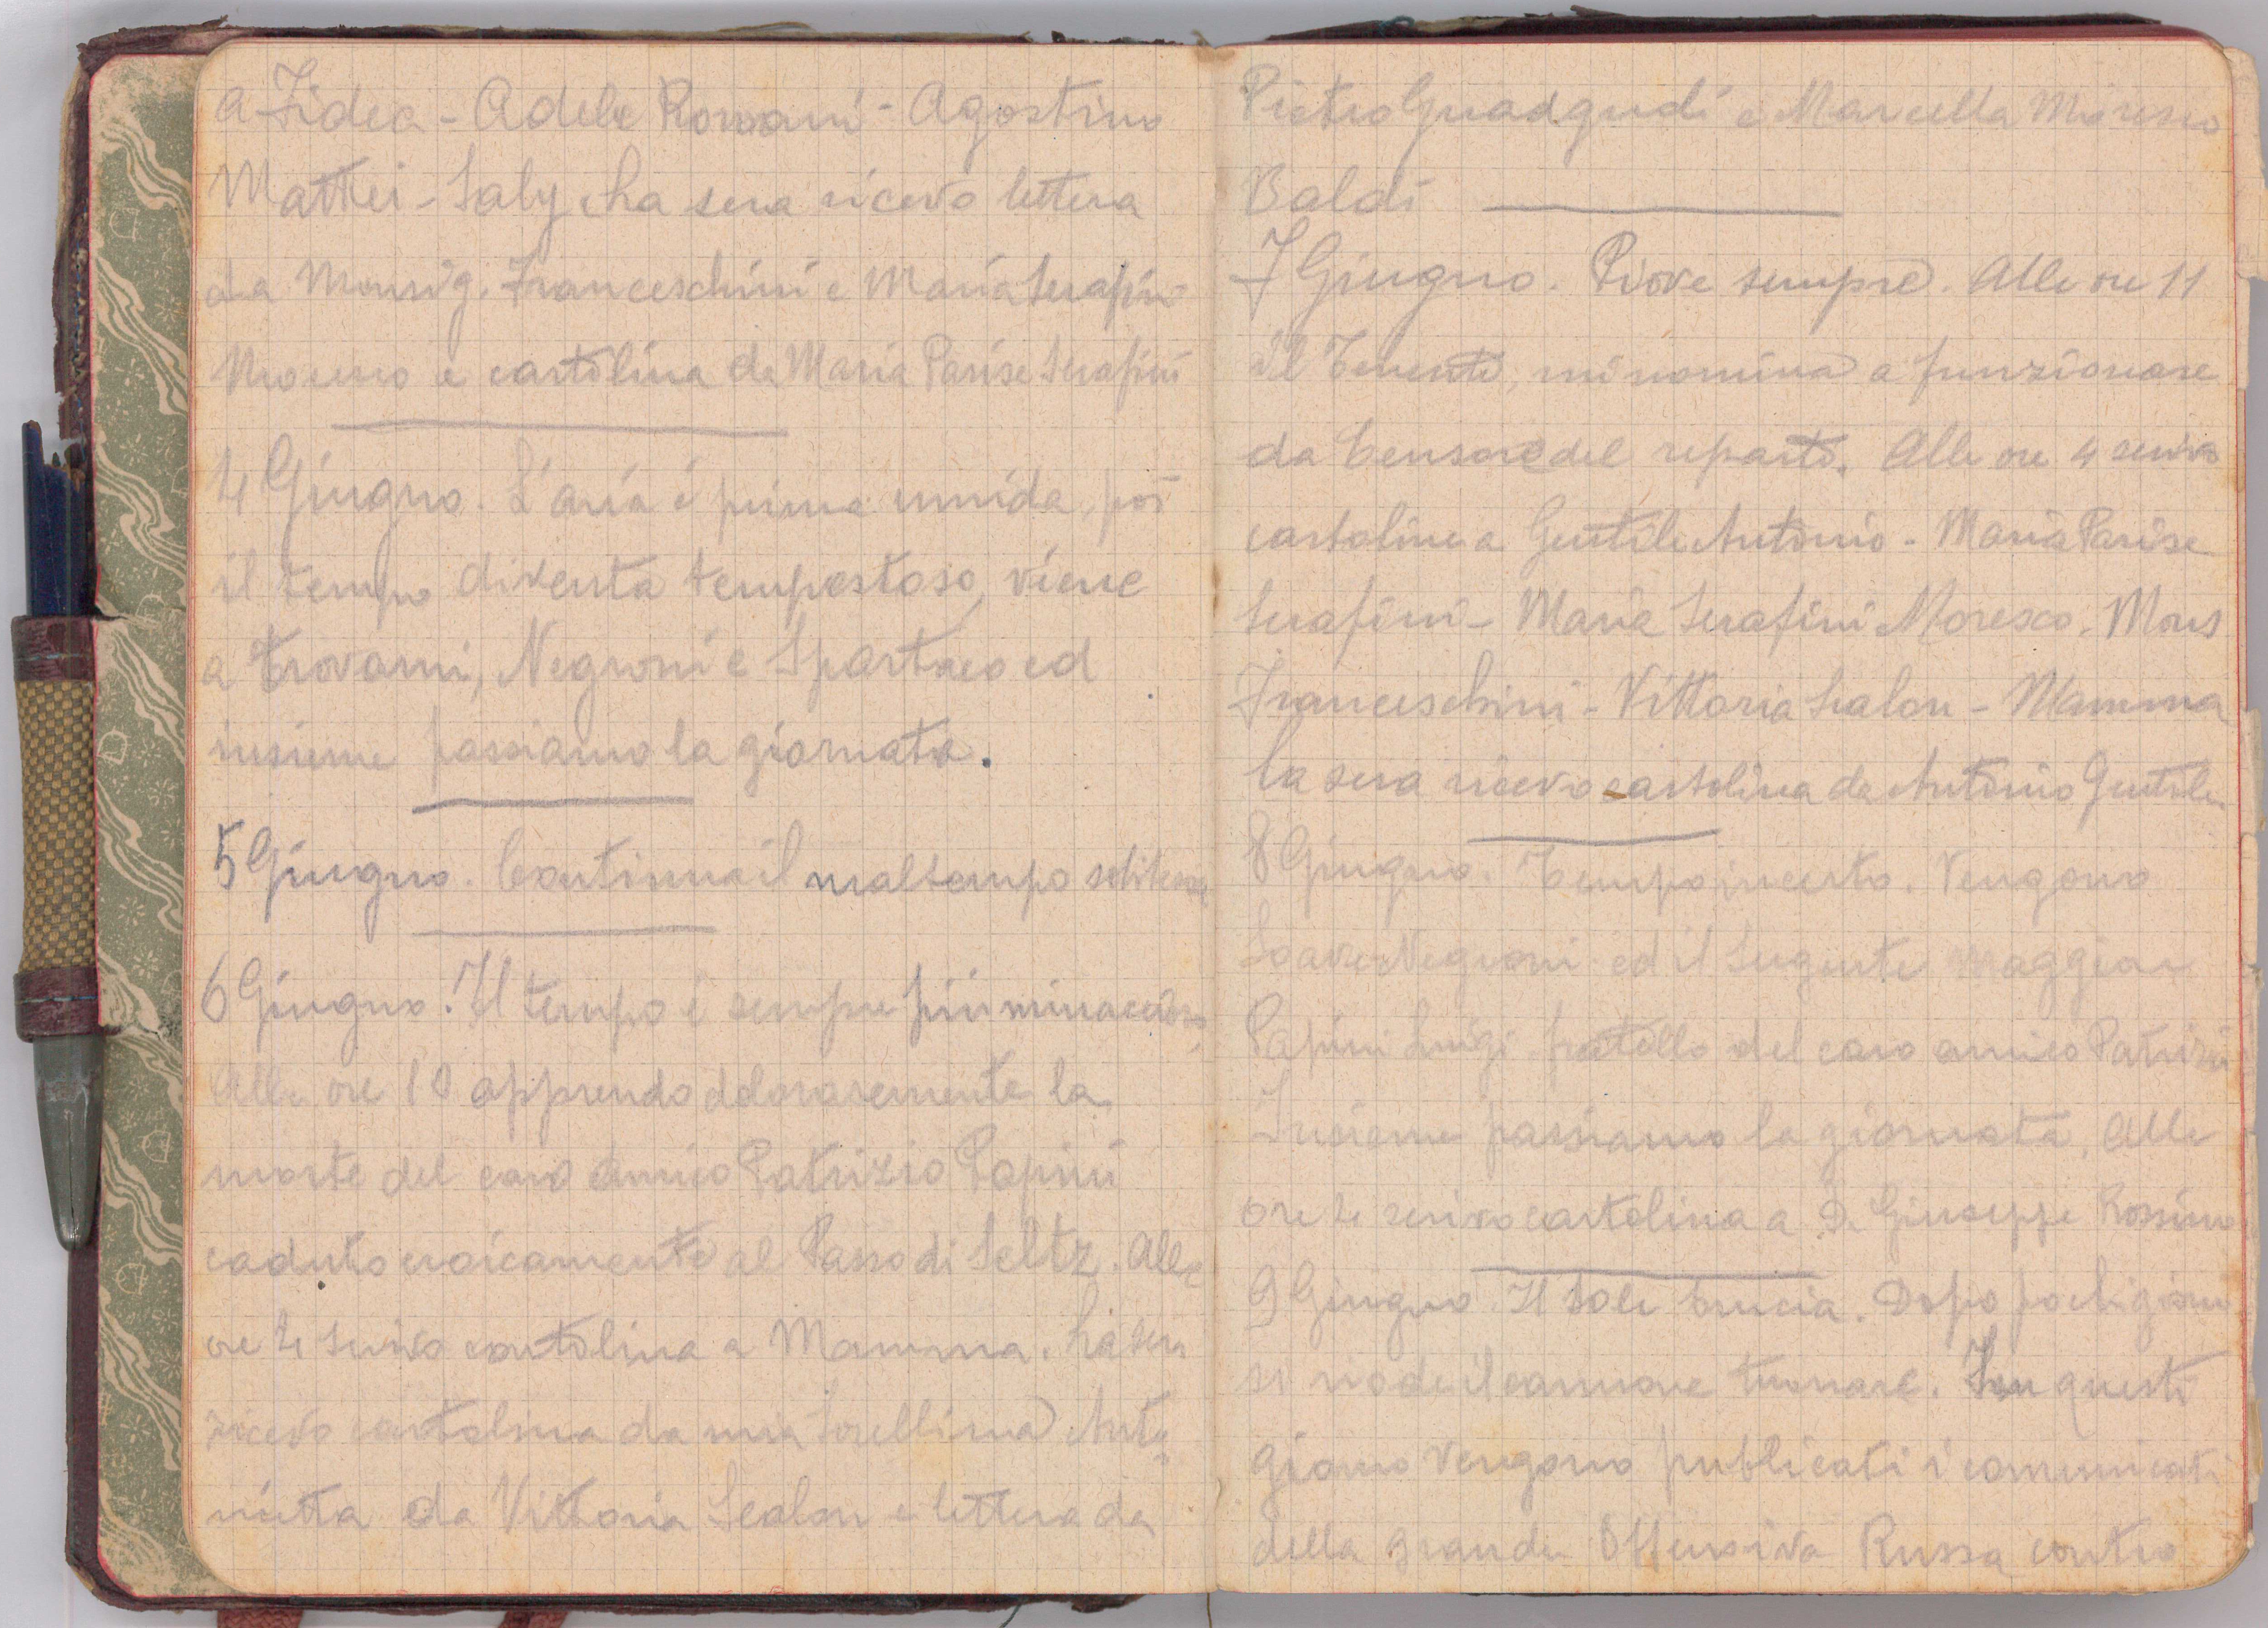 a Fidea - Adele Romani - Agostino
Mattei - Saly. La sera ricevo lettera
da Monsig. Franceschini e Maria Serafini
Moresco e cartolina da Maria Parise Serafini
4 Giugno. L'aria è prima umida, poi
il tempo diventa tempestoso, viene
a trovarmi, Negroni e Spartaco ed
insieme passiamo la giornata.
5 Giugno. Continua il maltempo
6 Giugno. Il tempo è sempre più minaccioso,
Alle ore 10 apprendo dolorosemente la
morte del caro amico Patrizio Papini
caduto eroicamente al Passo di Seltz. Alle
ore 4 scrivo cartolina a Mamma. La sera
ricevo cartolina da mia sorellina Anto=
nietta da Vittoria Scalon e lettera da
Pietro Guadgudi e Marcella Moresco
Baldi
7 Giugno. Piove sempre. Alle ore 11
il Tenente, mi nomina a funzionare
da Censore del reparto. Alle ore 4 scrivo
cartoline a Gentile Antonio - Maria Parise
Serafini - Maria Serafini Moresco. Mons
Franceschini - Vittoria Scalon - Mamma
la sera ricevo cartolina da Antonio Gentile
8 Giugno. Tempo incerto. Vengono
Negroni ed il Sergente maggior
Papini Luigi fratello del caro amico Patrizio
Insieme passiamo la giornata. Alle
ore 4 scrivo cartolina a D. Giuseppe Rossino
9 Giugno. Il sole brucia. Dopo pochi giorni
si riode il cannone tuonare. In questi
giorno vengono publicati i comunicati
della grande Offensiva Russa contro